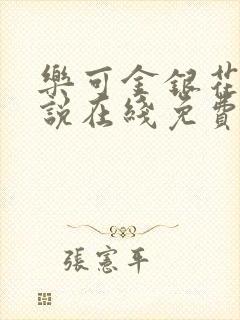 樂可金銀花
說在綫免費
張憲平